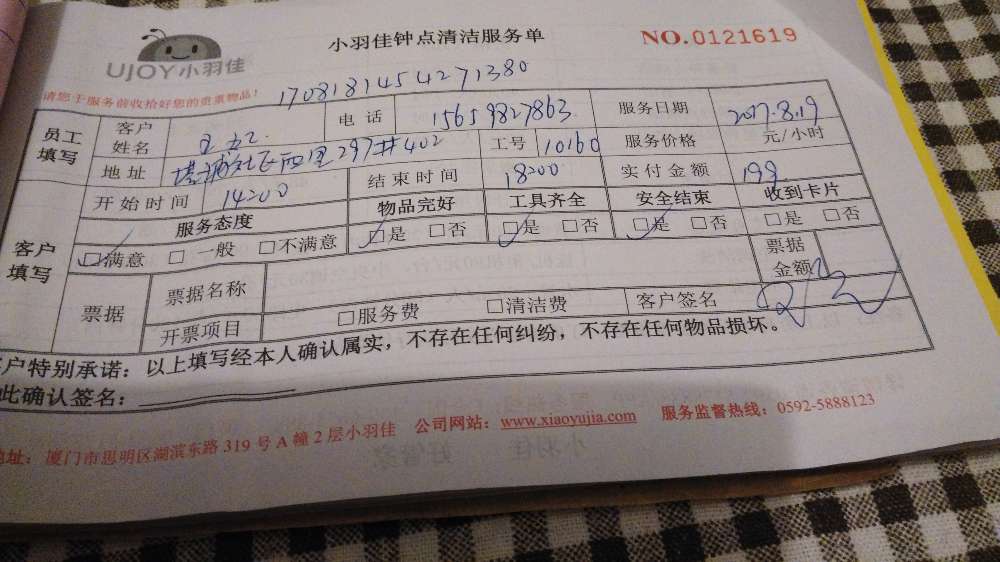 UJOY小羽佳
小羽佳钟点清洁服务单
NO.0121619
请您于服务前收拾好您的贵重物品!
1708181454271380
员工填写 客户姓名 电话 15659827863 服务日期 2017.8.19
地址 297#402 工号 10160 服务价格 元/小时
客户填写 开始时间 14:00 结束时间 18:00 实付金额 199
服务态度 物品完好 工具齐全 安全结束 收到卡片
☑满意 □一般 □不满意 ☑是 □否 ☑是 □否 ☑是 □否 □是 □否
票据 票据名称 票据金额
开票项目 □服务费 □清洁费 客户签名
户特别承诺:以上填写经本人确认属实,不存在任何纠纷,不存在任何物品损坏。
此确认签名:
地址:厦门市思明区湖滨东路319号A幢2层小羽佳 公司网站:www.xiaoyujia.com 服务监督热线:0592-5888123